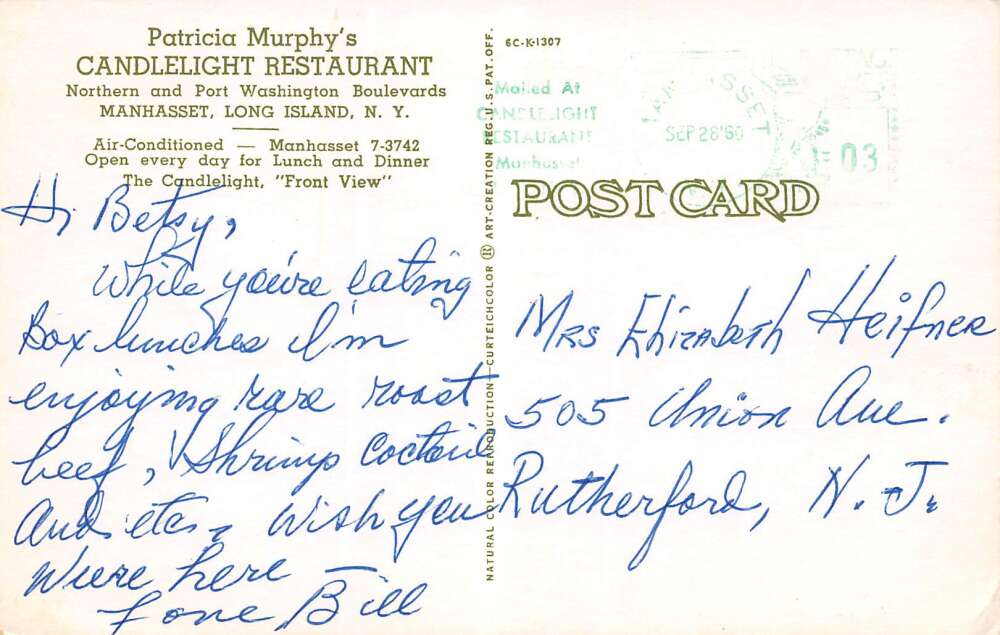 Patricia Murphy's
CANDLELIGHT RESTAURANT
Northern and Port Washington Boulevards
MANHASSET, LONG ISLAND, N. Y.
Air-Conditioned — Manhasset 7-3742
Open every day for Lunch and Dinner
The Candlelight, "Front View"
Hi Betsy,
While you're eating
Box lunches I'm
enjoying rare roast
beef, Shrimp Coctail
And etc. Wish you
Were here —
Love Bill
NATURAL COLOR REPRODUCTION—CURTEICHCOLOR ® ART-CREATION REG. U.S. PAT. OFF.
6C-K-1307
Mailed At
CANDLELIGHT
RESTAURANT
Manhasset
MANHASSET
SEP 28 '60
03
POST CARD
Mrs Elizabeth Heifner
505 Union Ave.
Rutherford, N. J.